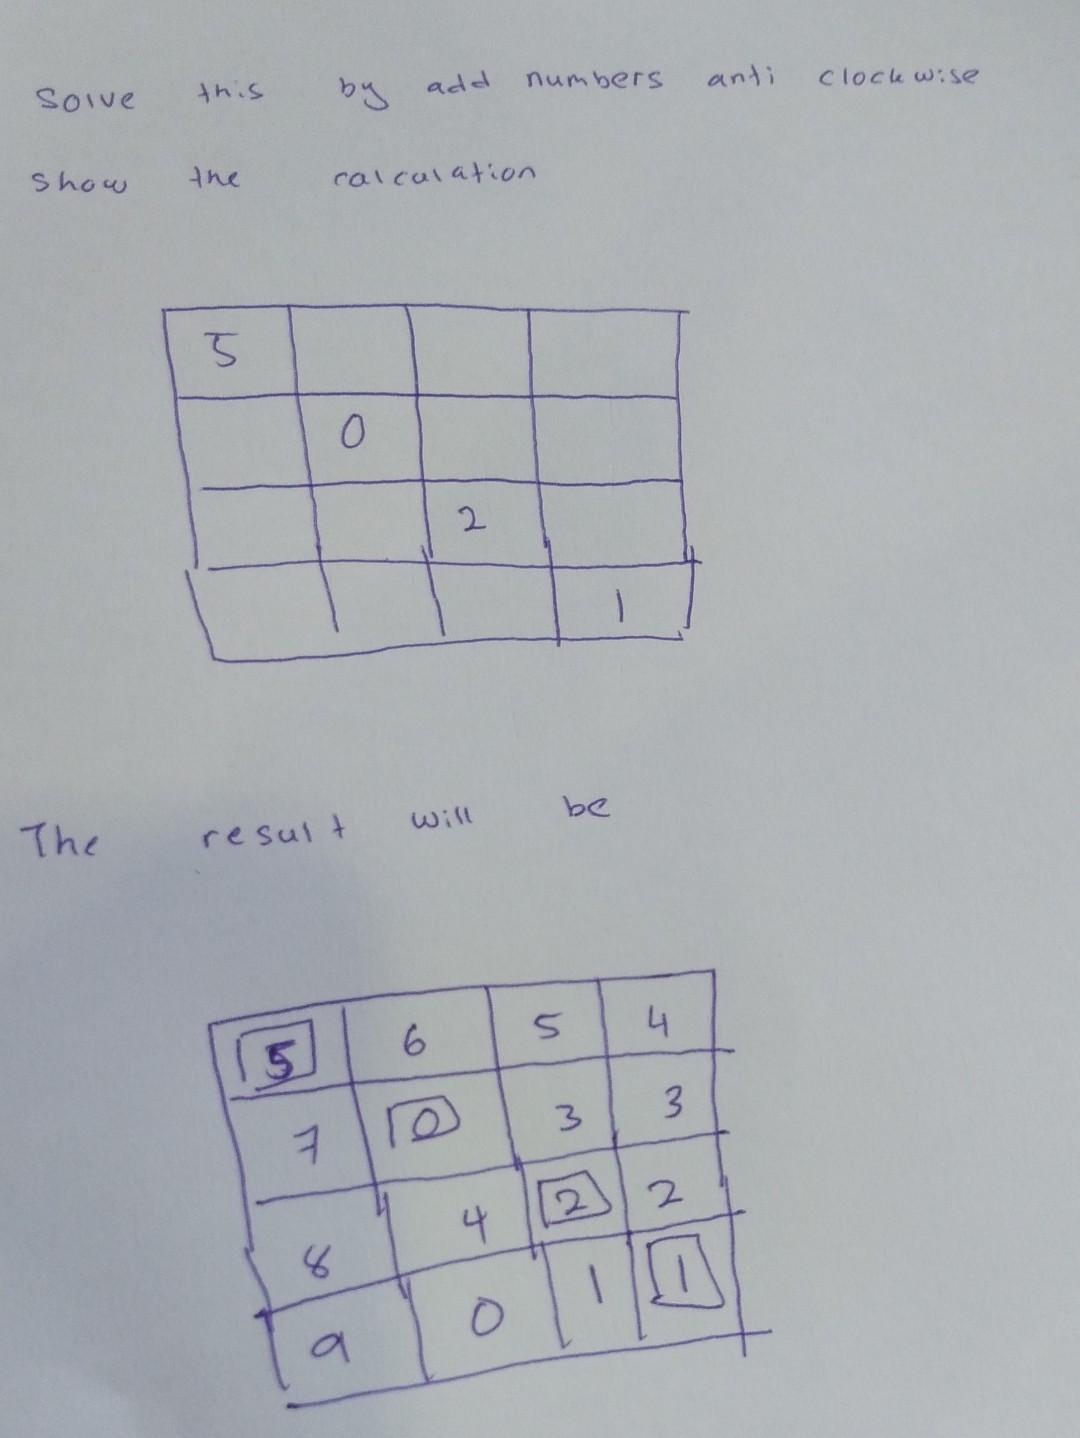 Solve this by add numbers anti clockwise
show the calculation
5
0
2
1
The result will be
5 6 5 4
7 0 3 3
8 4 2 2
9 0 1 1